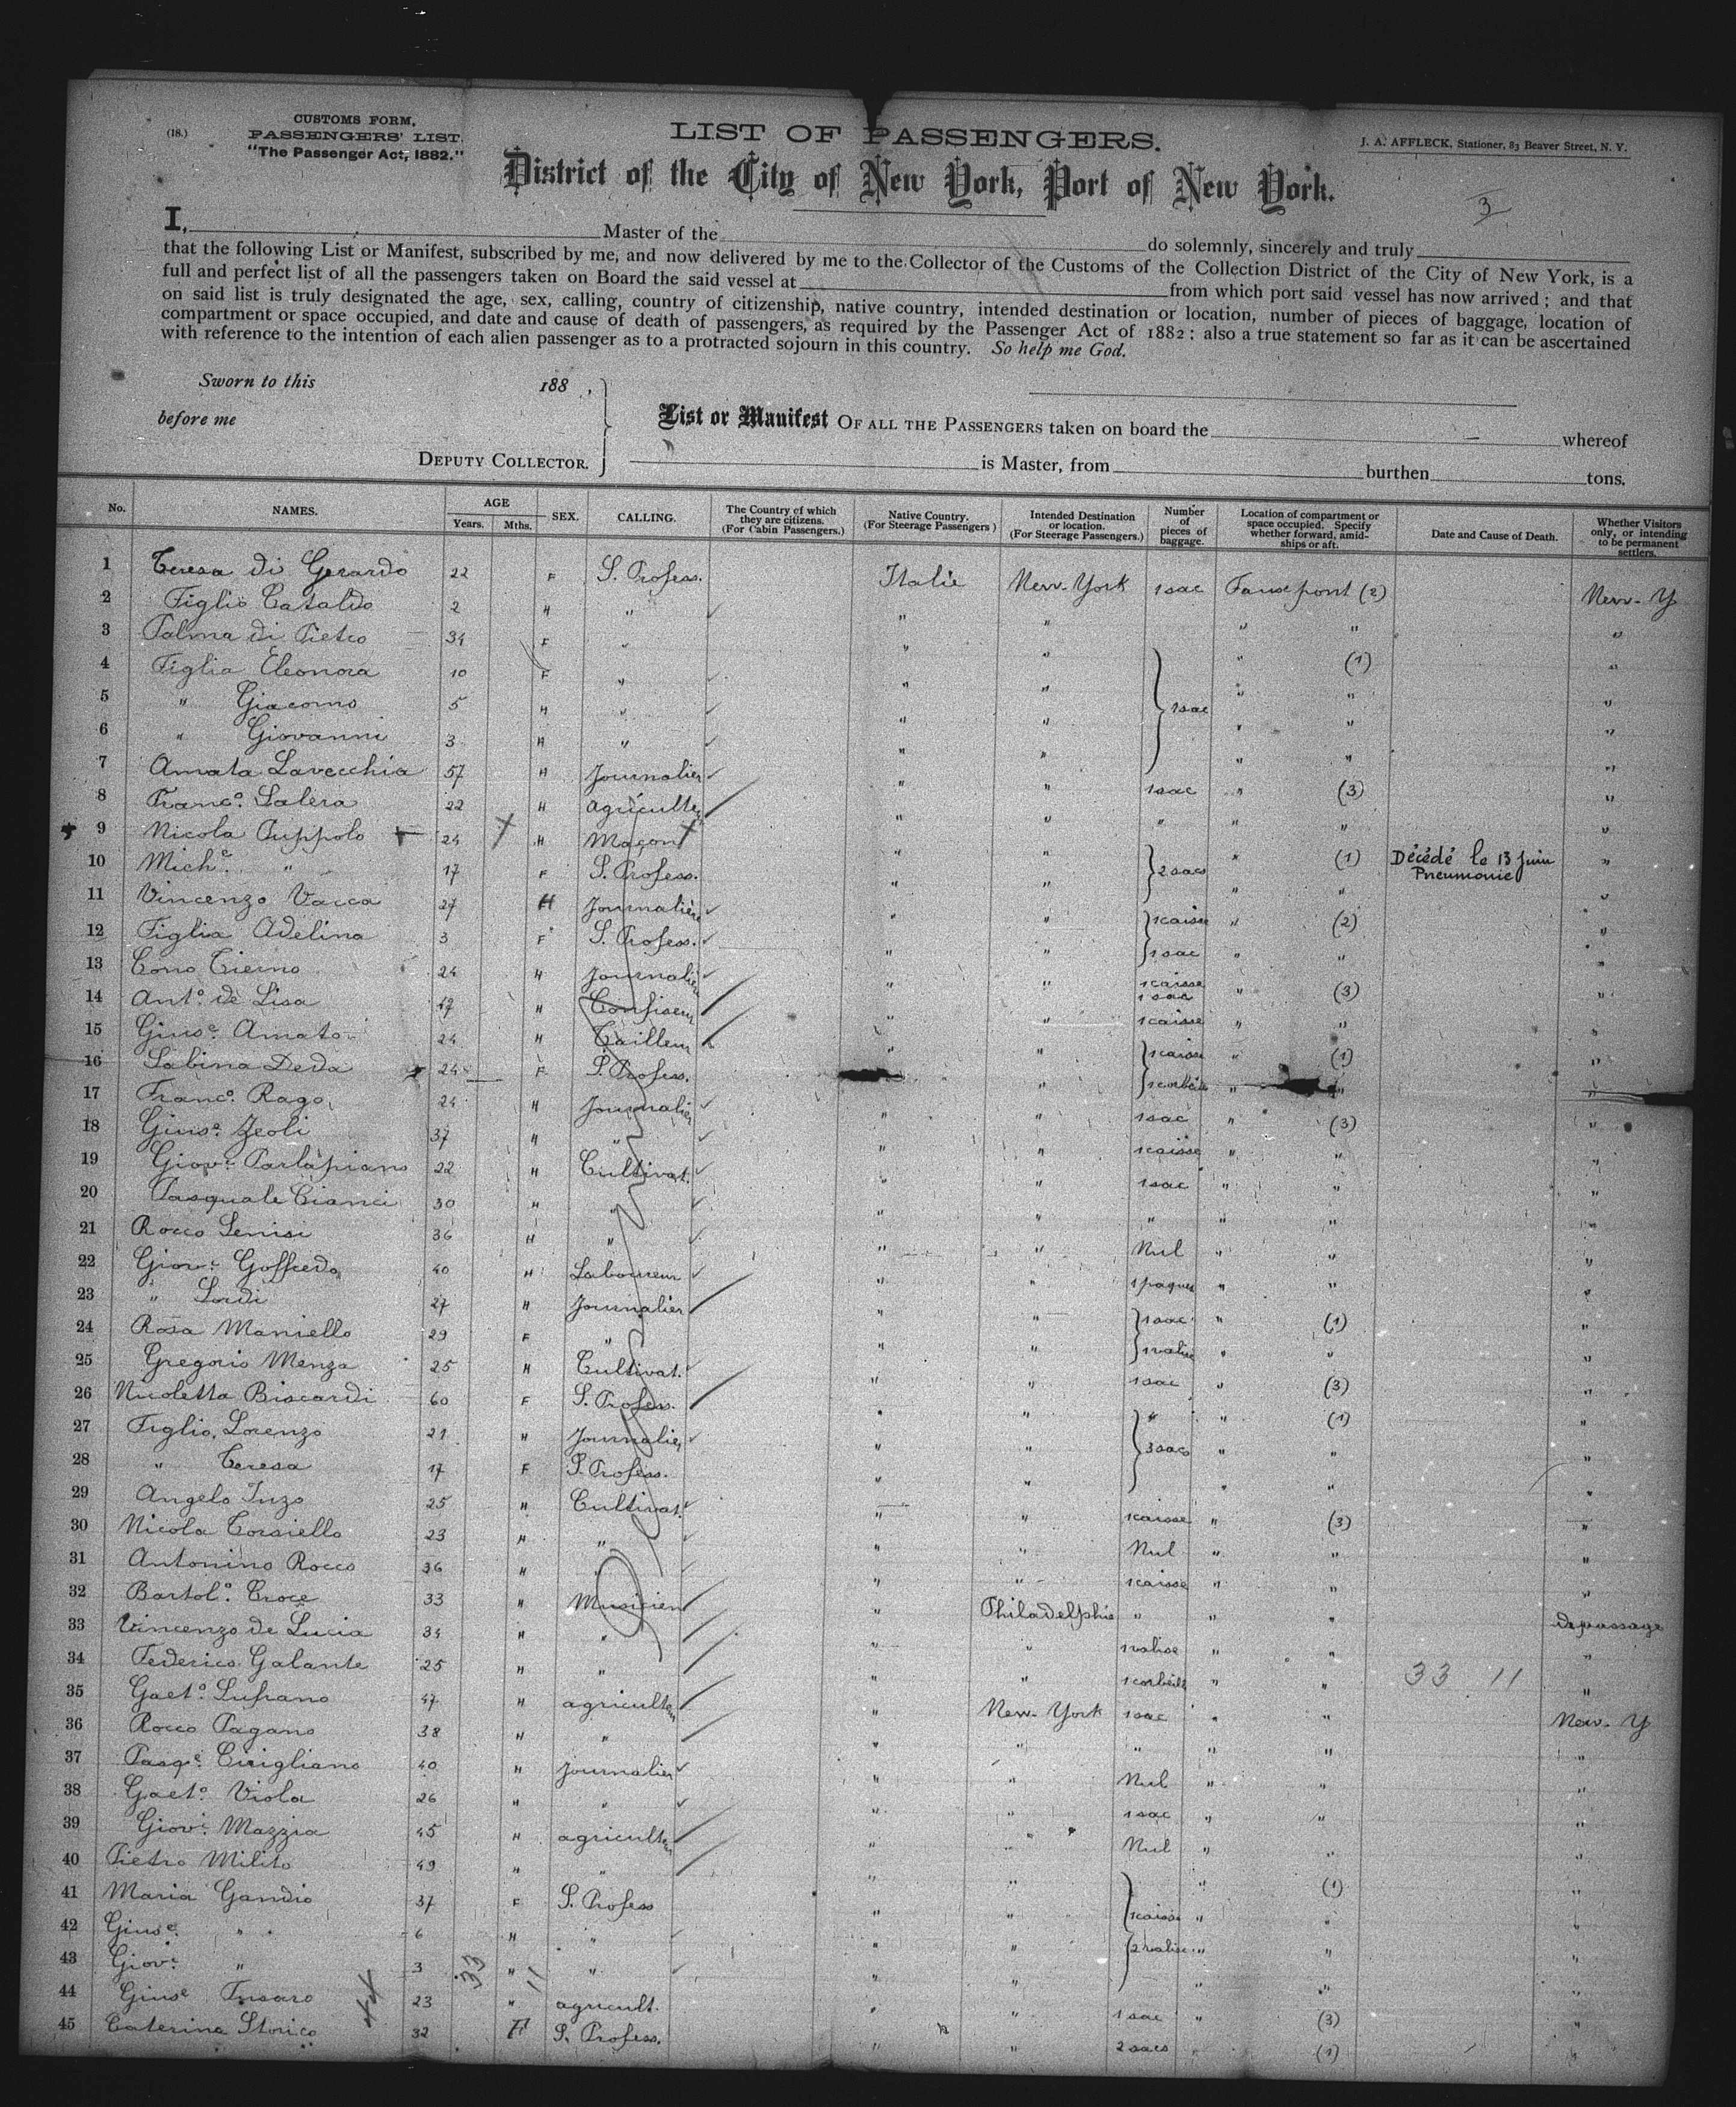 (18.)
CUSTOMS FORM.
PASSENGERS' LIST.
"The Passenger Act, 1882."
LIST OF PASSENGERS.
J. A. AFFLECK, Stationer, 83 Beaver Street, N. Y.
District of the City of New York, Port of New York.
3
I, Master of the do solemnly, sincerely and truly
that the following List or Manifest, subscribed by me, and now delivered by me to the Collector of the Customs of the Collection District of the City of New York, is a
full and perfect list of all the passengers taken on Board the said vessel at from which port said vessel has now arrived; and that
on said list is truly designated the age, sex, calling, country of citizenship, native country, intended destination or location, number of pieces of baggage, location of
compartment or space occupied, and date and cause of death of passengers, as required by the Passenger Act of 1882: also a true statement so far as it can be ascertained
with reference to the intention of each alien passenger as to a protracted sojourn in this country. So help me God.
Sworn to this 188 ,
before me
DEPUTY COLLECTOR.
List or Manifest OF ALL THE PASSENGERS taken on board the whereof
is Master, from burthen tons.
No. NAMES. AGE Years. Mths. SEX. CALLING. The Country of which they are citizens. (For Cabin Passengers.) Native Country. (For Steerage Passengers) Intended Destination or location. (For Steerage Passengers.) Number of pieces of baggage. Location of compartment or space occupied. Specify whether forward, amidships or aft. Date and Cause of Death. Whether Visitors only, or intending to be permanent settlers.
1 Teresa di Gerardo 22 F S. Profess. Italie New-York 1 sac Faux pont (2) New-Y
2 Figlio Cataldo 2 H " " " " " "
3 Palma di Pietro 34 F " " " " (1) "
4 Figlia Eleonora 10 F " " " " " "
5 " Giacomo 5 H " " " 1 sac " " "
6 " Giovanni 3 H " " " " " "
7 Amata Lavecchia 57 H Journalier " " 1 sac " (3) "
8 Franc.o Salera 22 H agriculteur " " " " " "
9 Nicola Puppolo 24 H Maçon " " 2 sacs " (1) Décédé le 13 Juin Pneumonie "
10 Mich.e " 17 F S. Profess. " " " " "
11 Vincenzo Vacca 27 H Journalière " " 1 caisse " (2) "
12 Figlia Adelina 3 F S. Profess. " " 1 sac " " "
13 Cono Cierno 24 H Journalier " " 1 caisse 1 sac " (3) "
14 Ant.o de Lisa 47 H Confiseur " " 1 caisse " " "
15 Gius.e Amato 24 H Tailleur " " 1 caisse " (1) "
16 Sabina Deda 24 F S. Profess. " 1 corbeille " " "
17 Franc.o Rago 24 H Journalier " " 1 sac " (3) "
18 Gius.e Zeoli 37 H " " " 1 caisse " " "
19 Giov.i Parlapiano 22 H Cultivat. " " 1 sac " " "
20 Pasquale Cianci 30 H " " " " " " "
21 Rocco Senisi 36 H " " " Nul " " "
22 Giov.i Goffredo 40 H Laboureur " " 1 paquet " " "
23 " Lordi 27 H Journalier " " 1 sac " (1) "
24 Rosa Maniello 29 F " " " 1 valise " " "
25 Gregorio Menza 25 H Cultivat. " " 1 sac " (3) "
26 Nicoletta Biscardi 60 F S. Profess. " " " " (1) "
27 Figlio Lorenzo 21 H Journalier " " 3 sacs " " "
28 " Teresa 17 F S. Profess. " " " " "
29 Angelo Inzo 25 H Cultivat. " " 1 caisse " (3) "
30 Nicola Torsiello 23 H " " " Nul " " "
31 Antonino Rocco 36 H " " " 1 caisse " " "
32 Bartol.o Croce 33 H Musicien " Philadelphie " " " De passage
33 Vincenzo de Lucia 34 H " " " 1 valise " " "
34 Federico Galante 25 H " " " 1 corbeille " " 33 11 "
35 Gaet.o Lufrano 47 H agriculteur " New-York 1 sac " " New-Y
36 Rocco Pagano 38 H " " " " " " "
37 Pasq.e Cirigliano 40 H journalier " " Nul " " "
38 Gaet.o Viola 26 H " " " 1 sac " " "
39 Giov.i Mazzia 45 H agriculteur " " Nul " " "
40 Pietro Milito 49 H " " " " (1) "
41 Maria Gandio 37 F S. Profess " " 1 caisse " " "
42 Gius.e " 6 H " " " 2 valises " " "
43 Giov.i " 3 " " " " " " "
44 Gius.e Fusaro 23 " agricult. " " 1 sac " (3) "
45 Caterina Storico 32 F S. Profess. " " 2 sacs (1) "
33 11
44